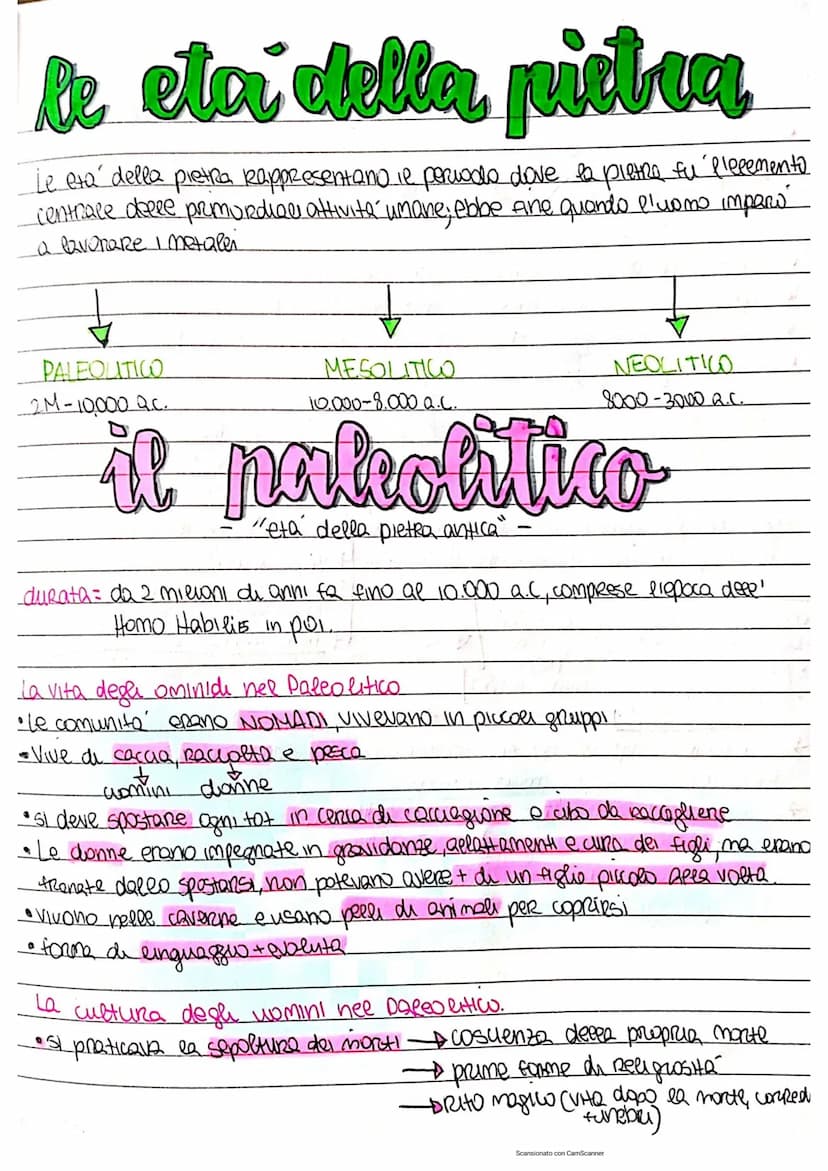 le età della pietra
Le età della pietra rappresentano il periodo dove la pietra fu l'elemento
centrale delle primordiali attività umane; ebbe fine quando l'uomo imparò
a lavorare i metalli
PALEOLITICO MESOLITICO NEOLITICO
2M-10.000 a.C. 10.000-8.000 a.C. 8000-3000 a.C.
il paleolitico
- "età della pietra antica" -
durata= da 2 milioni di anni fa fino al 10.000 a.C, comprese l'epoca dell'
Homo Habilis in poi.
La vita degli ominidi nel Paleolitico
•Le comunità erano NOMADI, vivevano in piccoli gruppi
•Vive di caccia, raccolta e pesca
uomini donne
•Si deve spostare ogni tot in cerca di cacciagione o cibo da raccogliere
•Le donne erano impegnate in gravidanze, allattamenti e cura dei figli, ma erano
frenate dallo spostarsi, non potevano avere + di un figlio piccolo alla volta.
•Vivono nelle caverne e usano pelli di animali per coprirsi
•forma di linguaggio + evoluta
La cultura degli uomini nel Paleolitico.
•Si praticava la sepoltura dei morti → coscienza della propria morte
→ prime forme di religiosità
→ Rito magico (vita dopo la morte, corredi
funebri)
Scansionato con CamScanner